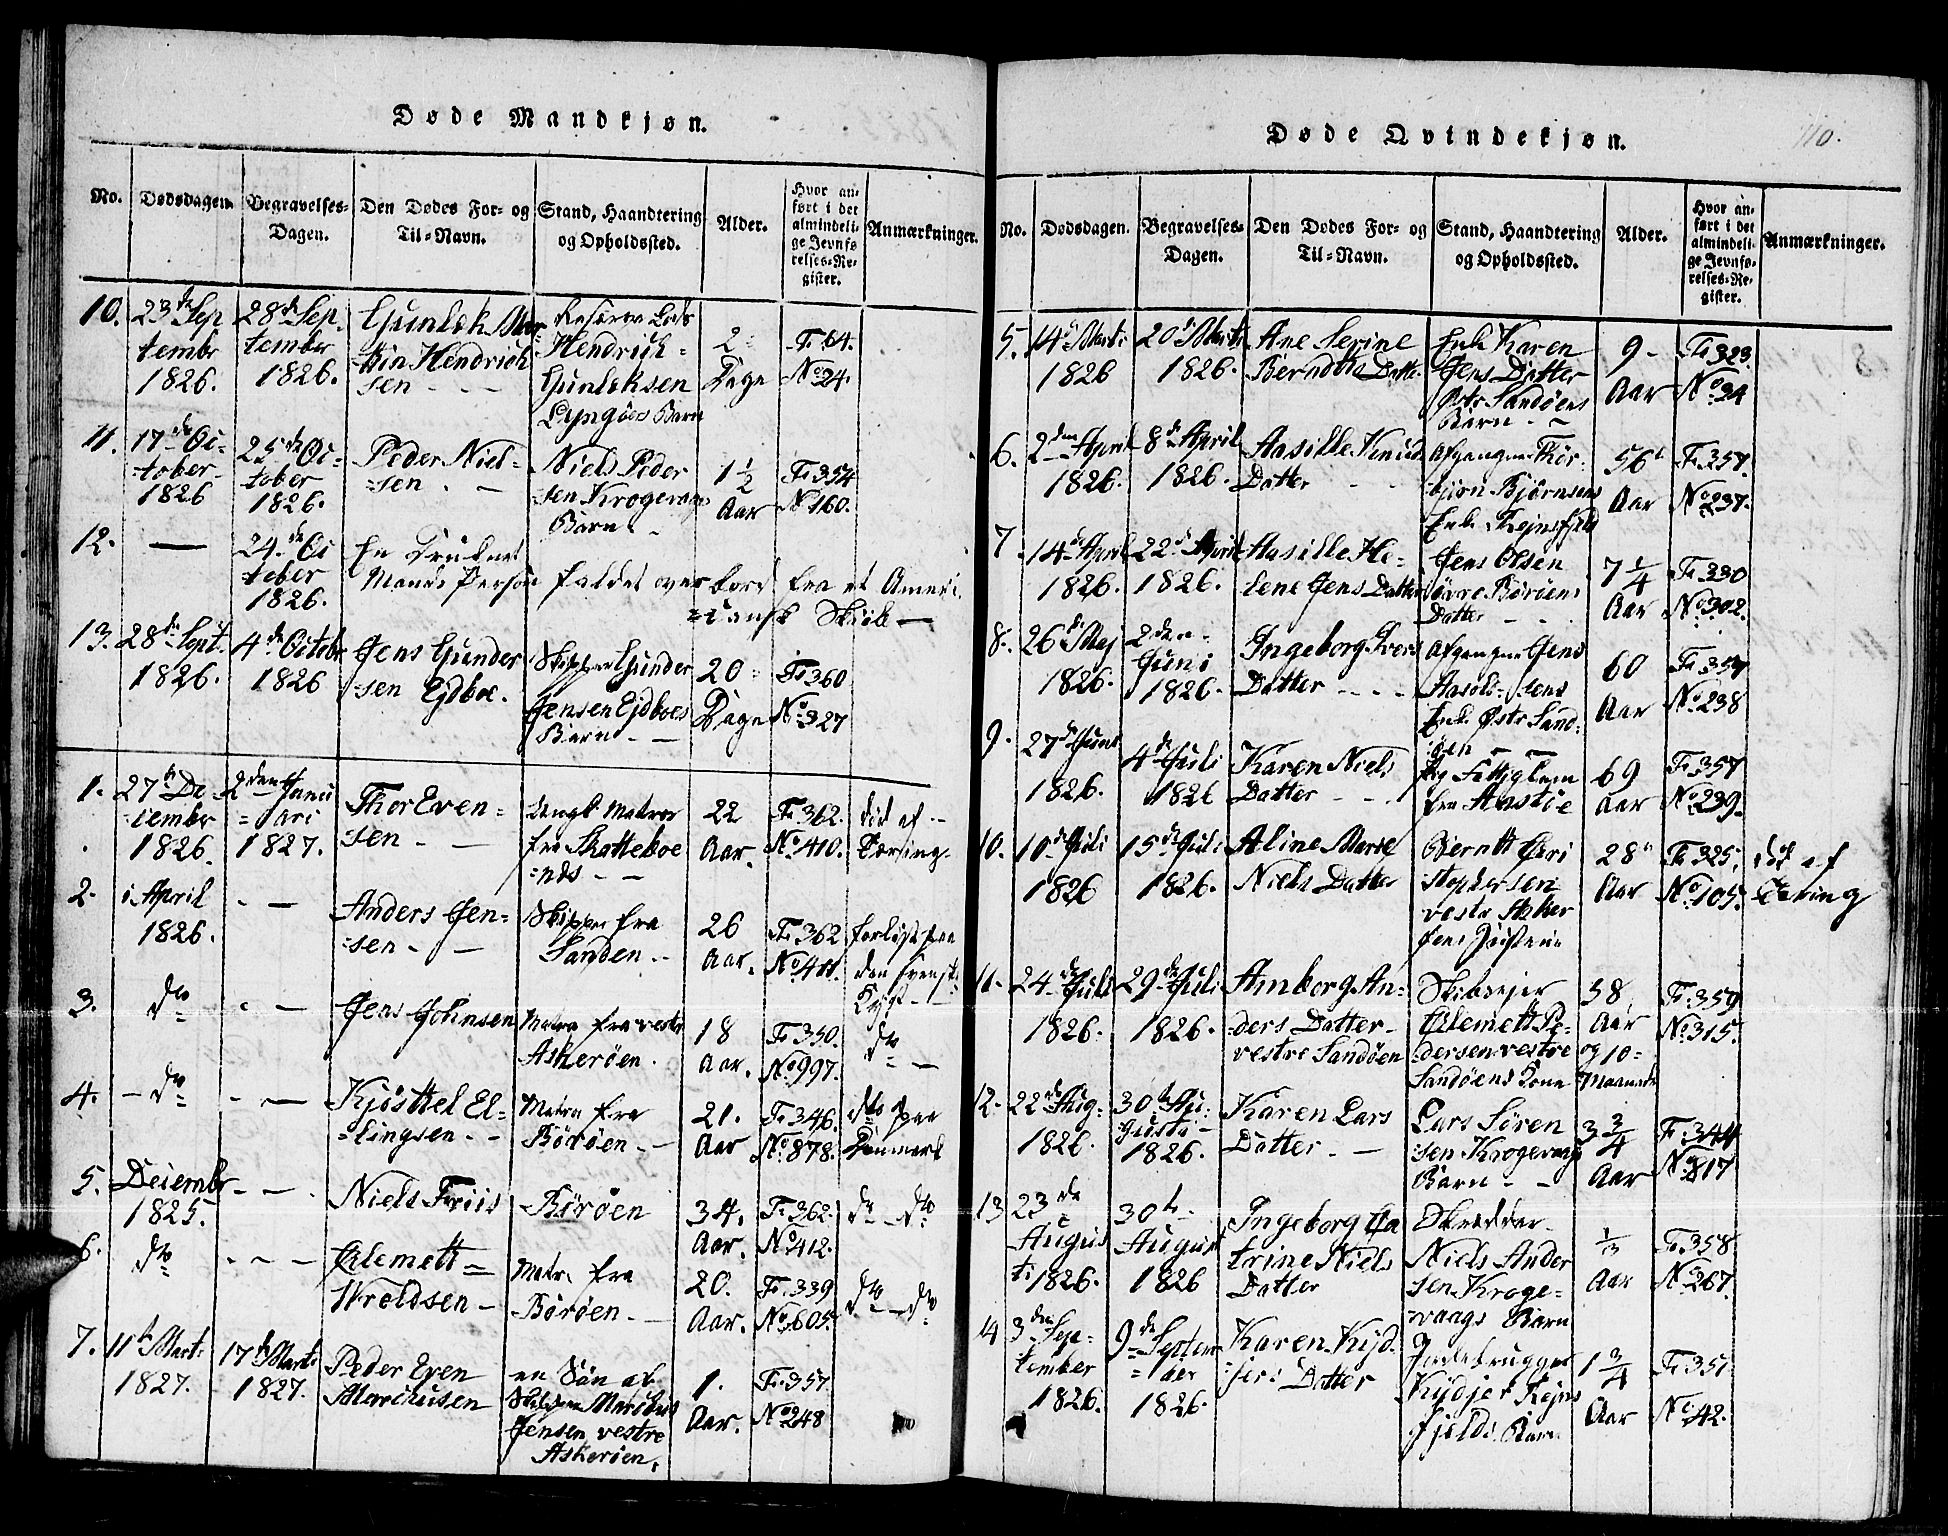 Døde Mandkjøn.
No. Dødsdagen. Begravelses-Dagen. Den Dødes For- og Til-Navn. Stand, Haandtering og Opholdssted. Alder. Hvor anført i det almindelige Jevnførelses-Register. Anmærkninger.
10. 23de September 1826. 28de September 1826. Gunlek Hendrichsen - - Hendrich Gunleksen Lyngøes Barn 2 Dage Fo 64. No 24.
11. 17de October 1826 25de October 1826. Peder Nielsen - - Niels Pedersen Krogevaags Barn - 1 1/2 Aar Fo 354 No 160.
12. — 24de October 1826. En Mands Person faldet over bord fra et Americansk Skib —
13. 28de Sept. 1826. 4de Octobr 1826 Jens Gundersen Ejdboe. Skipper Gunder Jensen Ejdboes Barn - - 20 Dage Fo 360 No 327
1. 27de December 1826. 2den Januari 1827. Thor Evensen - - fra Skatteboe - - 22 Aar. Fo 362. No 410. død af Tæring
2. i April 1826. - — Anders Jensen - - Skipper fra Sanden - - 26 Aar. Fo 362 No 411. forlist paa den svenske Kyst - -
3. do - — Jens Johnsen Matros fra vestr Askerøen. 18 Aar. Fo 350. No 997. do - —
4. - do - - — Kjøstel Ellingsen - - Matros fra Børøen - - 21. Aar Fo 346. No 878. do paa Danmark
5. Decembr 1825. - - - Niels Friis Børøen 34. Aar. Fo 362. No 412. do - do
6. do - - - Clemett Wroldsen - Matr. fra Børøen - - 20. Aar. Fo 339 No 605. do - do
7. 11te Marti 1827. 17de Marti 1827. Peder Even Marchusen en Søn af Skipper Marchus Jensen vestre Askerøen. 1. Aar. Fo 357. No 248
Døde Qvindekjøn.
110.
No. Dødsdagen. Begravelses-Dagen. Den Dødes For- og Til-Navn. Stand, Haandtering og Opholdssted. Alder. Hvor anført i det almindelige Jevnførelses-Register. Anmærkninger.
5. 14de Marti 1826 20de Marti 1826. Ane Serine Berndtts Datter Enke Karen Jens Datter Østr Sandøens Barn - - 9 - Aar Fo 323. No 34
6. 2den April 1826. 8de April 1826. Aasille Knud Datter - - Afgangne Thorbjørn Bjørnsens Enke 56 Aar Fo 357. No 237.
7. 14de April 1826. 22de April 1826. Aasille Helene Jens Datter Jens Olsen øvre Børøens Datter - - 7 1/4 Aar Fo 330 No 302.
8. 26de Maj 1826. 2den Juni 1826. Ingeborg Ivers Datter - - - - Afgangne Jens Enke Østr Sandøen — — 60 Aar Fo 357 No 238
9. 27de Juni 1826. 4de Juli 1826 Karen Niels Datter - - - fra 69 Aar Fo 357 No 239.
10. 10de Juli 1826 15de Juli 1826. Aline Marie Niels Datter Berntt Christophersen vestr Askerøens 28 Aar Fo 325. No 105. død af Tæring
11. 24de Juli 1826. 29de Juli 1826. Amborg Anders Datter - vestre Sandøen Skibsejer Clemett Pedersen vestre Sandøens Kone 38 Aar og 10 Maaneder Fo 359. No 315.
12. 22de Aug. 1826. 30te Augusti 1826. Karen Lars Datter - - Lars Sørensen Krogevaags Barn - - 3 3/4 Aar Fo 344 No 817
13 23de Augusti 1826. 30te August 1826 Ingeborg Catrine Niels Datter Skrædder Niels Andersen Krogevaags Barn 1/3 Aar Fo 358. No 267.
14 3den September 1826. 9de September 1826. Karen Kydjers Datter Kydjer Barn. 1 3/4 Aar Fo 351. No 42.